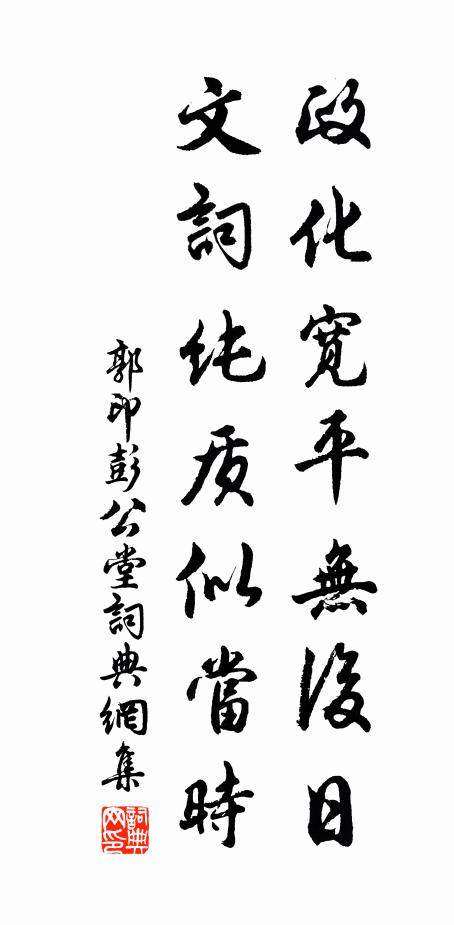 政化寬平無復日
文詞純质似當時
郭印彭公堂詞典網集
詞典网印